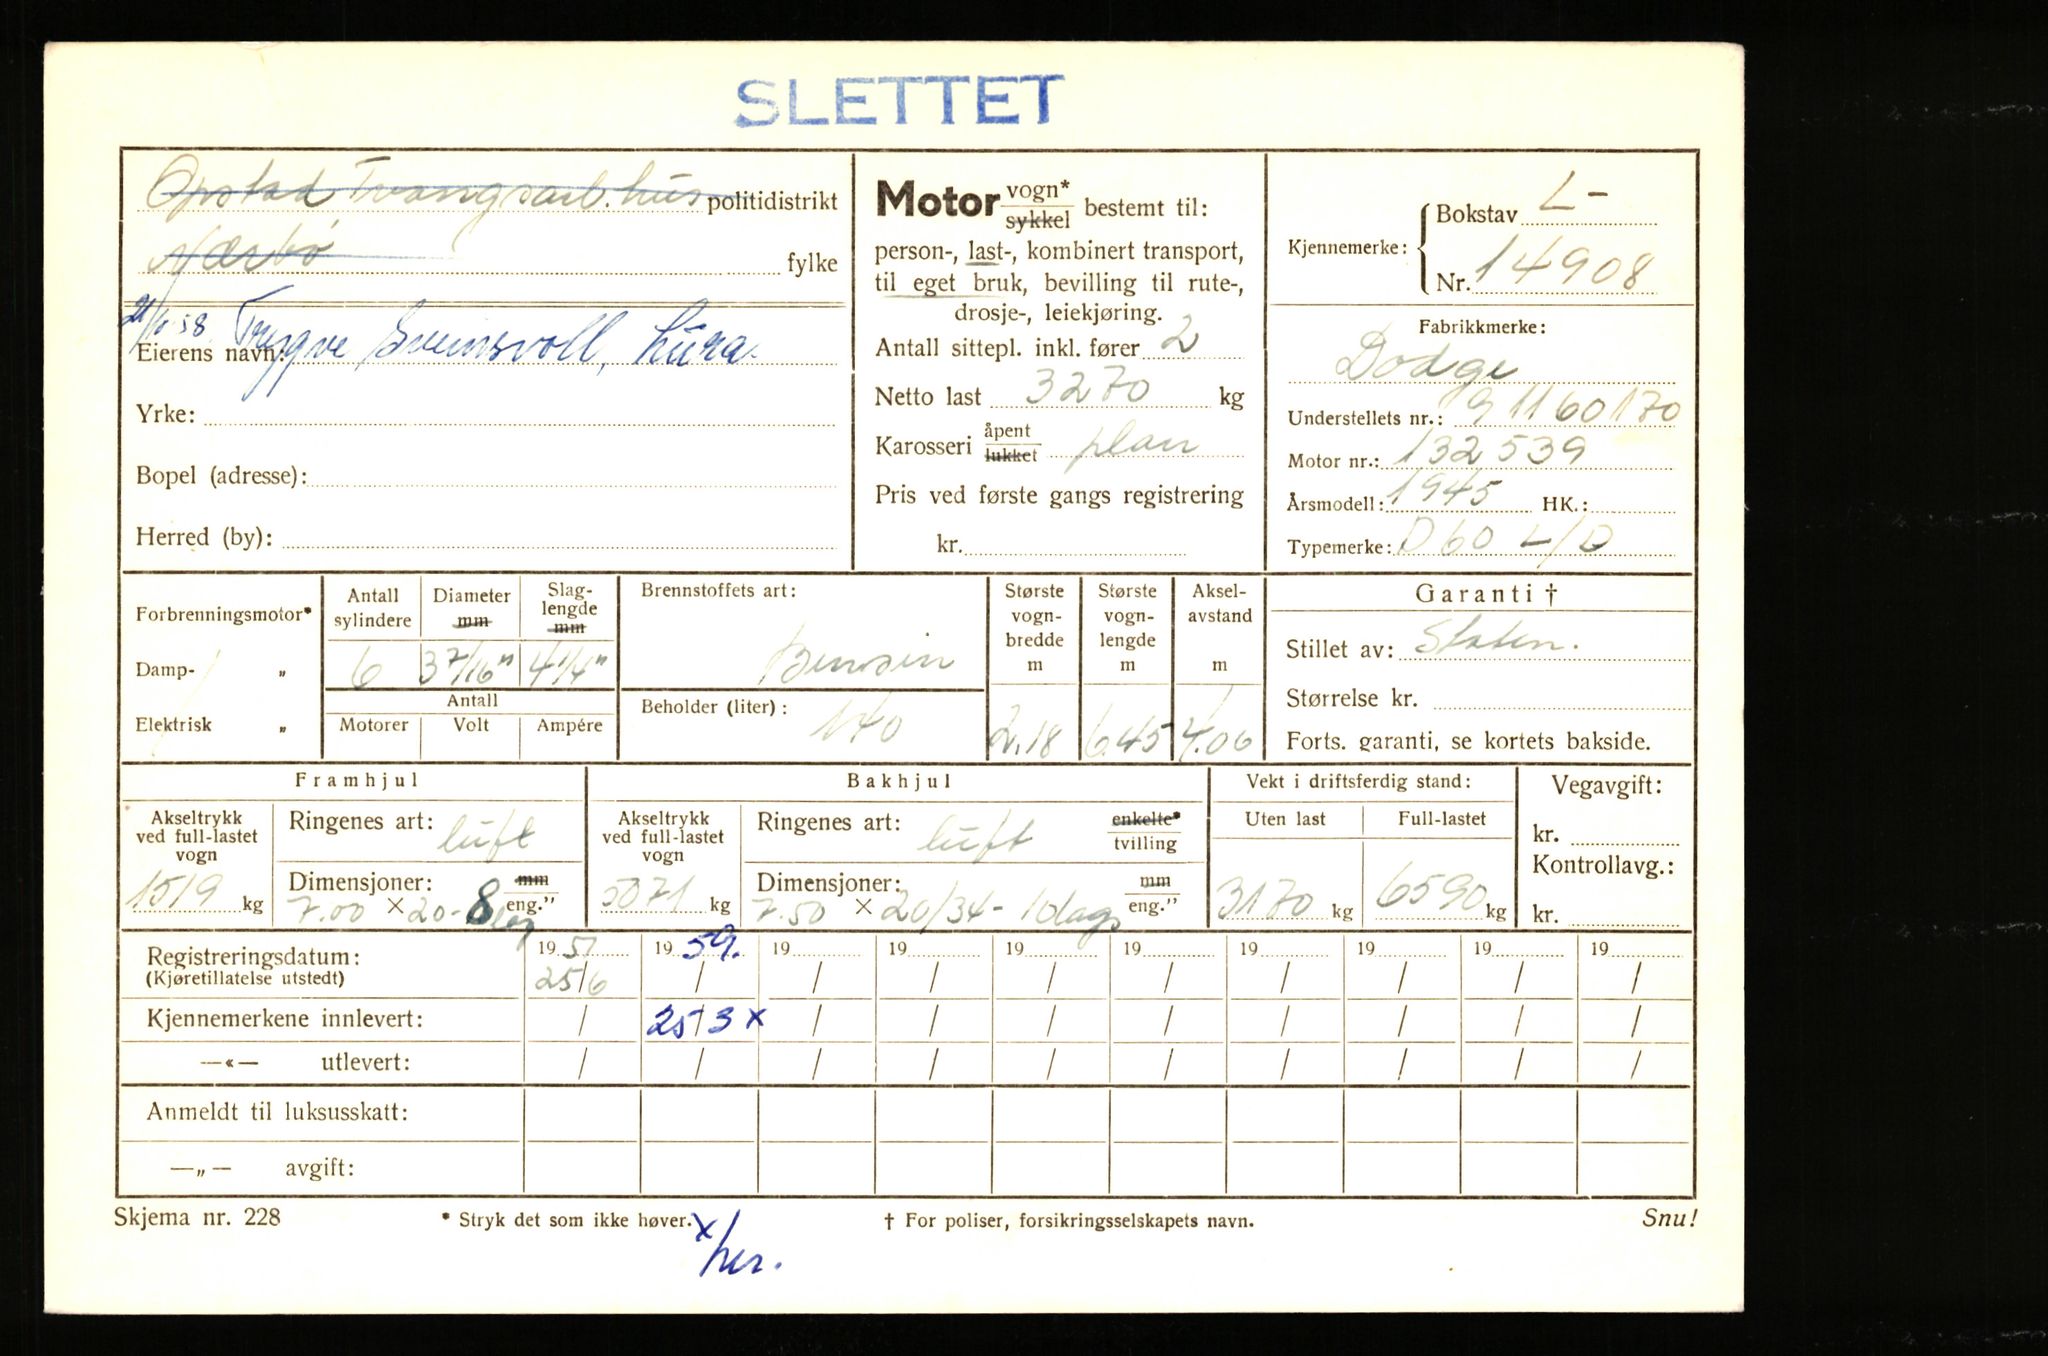 SLETTET
Opstad Tvangsarb.hus politidistrikt
Nærbø fylke
21/1-58. Trygve Sveinsvoll, Lura.
Eierens navn:
Yrke:
Bopel (adresse):
Herred (by):
Motor vogn* sykkel bestemt til:
person-, last-, kombinert transport,
til eget bruk, bevilling til rute-,
drosje-, leiekjøring.
Antall sittepl. inkl. fører 2
Netto last 3270 kg
Karosseri åpent lukket plan
Pris ved første gangs registrering
kr.
Kjennemerke: Bokstav L-
Nr. 14908
Fabrikkmerke:
Dodge
Understellets nr.: 91160170
Motor nr.: 132539
Årsmodell: 1945 HK.:
Typemerke: D60 L/D
Forbrenningsmotor*
Damp- „
Elektrisk „
Antall sylindere
6
Diameter mm
3 7/16"
Slag-lengde mm
4 1/4"
Antall
Motorer Volt Ampére
Brennstoffets art:
Bensin
Beholder (liter):
140
Største vogn-bredde m
2.18
Største vogn-lengde m
6.45
Aksel-avstand m
4.06
Garanti †
Stillet av: Staten.
Størrelse kr.
Forts. garanti, se kortets bakside.
Framhjul
Akseltrykk ved full-lastet vogn
1519 kg
Ringenes art: luft
Dimensjoner: mm eng."
7.00 × 20 - 8 lag
Bakhjul
Akseltrykk ved full-lastet vogn
5071 kg
Ringenes art: luft enkelte* tvilling
Dimensjoner: mm eng."
7.50 × 20/34 - 10 lags
Vekt i driftsferdig stand:
Uten last Full-lastet
3170 kg 6590 kg
Vegavgift:
kr.
Kontrollavg.:
kr.
Registreringsdatum: 1951 1959. 19 19 19 19 19 19 19 19
(Kjøretillatelse utstedt) 25/6 / / / / / / / / /
Kjennemerkene innlevert: / 25/3 x / / / / / / / /
—«— utlevert: / / / / / / / / / /
Anmeldt til luksusskatt:
—„— avgift:
Skjema nr. 228 * Stryk det som ikke høver. † For poliser, forsikringsselskapets navn. Snu!
x/her.